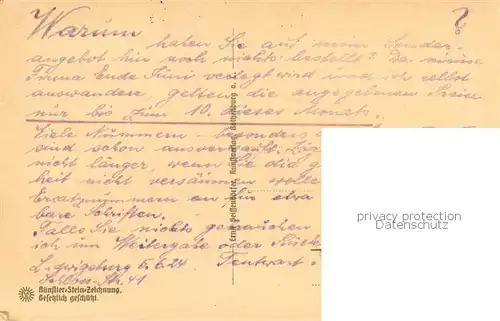 Warum ?
haben Sie auf mein Sonder-
angebot hin noch nichts bestellt? Da meine
Firma Ende Juni verlegt wird und ich selbst
auswandere, gelten die angegebenen Preise
nur bis zum 10. dieses Monats.
Viele Nummern - besonders
sind schon ausverkauft. Zög
nicht länger, wenn Sie die g
heit nicht versäumen wolle
Ersatznummern an, für etwa
bare Schriften.
Falls Sie nichts gebrauchen
ich um Weitergabe oder Rück
L-wigsburg 5.6.24.
Schloss-Str. 41
Künstler-Stein-Zeichnung.
Gesetzlich geschützt.
Ernst Geissendörfer, Kunstverlag Rothenburg o. T.
privacy protection
Datenschutz